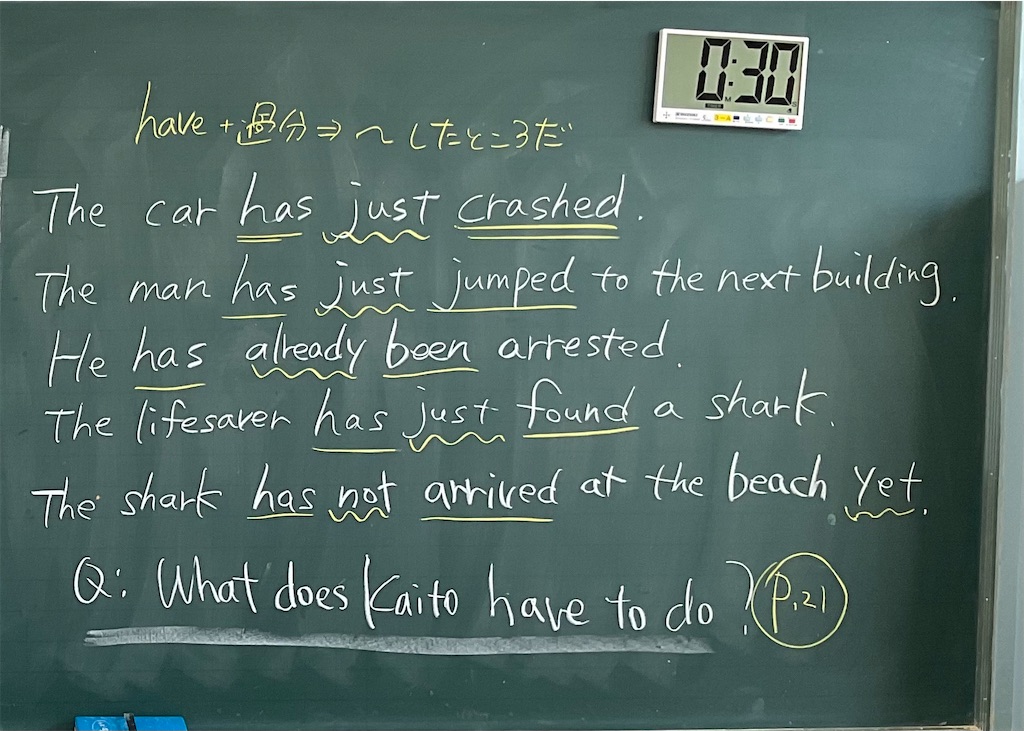 0:30
have + 過分 ⇒ ～したところだ
The car has just crashed.
The man has just jumped to the next building.
He has already been arrested.
The lifesaver has just found a shark.
The shark has not arrived at the beach yet.
Q: What does Kaito have to do? p.21